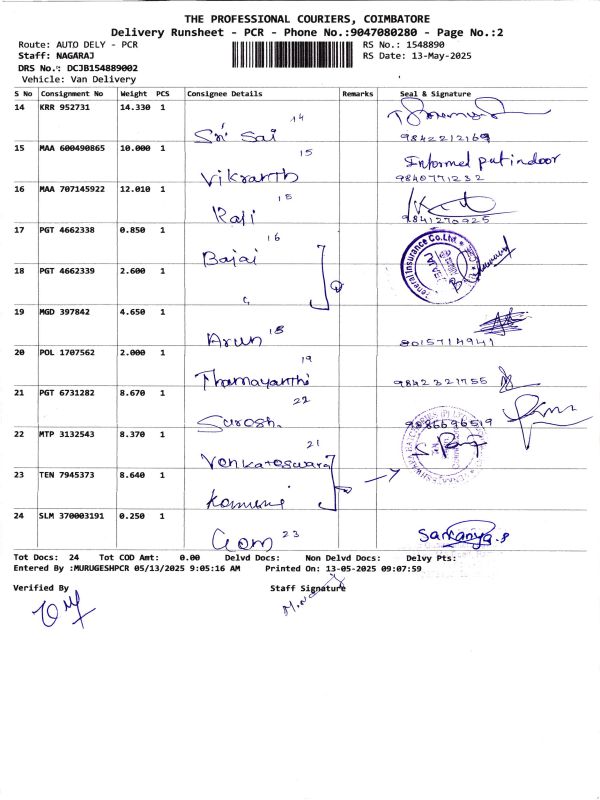 THE PROFESSIONAL COURIERS, COIMBATORE
Delivery Runsheet - PCR - Phone No.:9047080280 - Page No.:2
Route: AUTO DELY - PCR
RS No.: 1548890
Staff: NAGARAJ
RS Date: 13-May-2025
DRS No.: DCJB154889002
Vehicle: Van Delivery
S No Consignment No Weight PCS Consignee Details Remarks Seal & Signature
14 KRR 952731 14.330 1 Sri Sai 14 9842212169
15 MAA 600490865 10.000 1 Vikranth 15 Informed put indoor 9840771232
16 MAA 707145922 12.010 1 15 9841270925
17 PGT 4662338 0.850 1 Bajaj 16 General Insurance Co.Ltd
18 PGT 4662339 2.600 1
19 MGD 397842 4.650 1 Arun 18 8015714941
20 POL 1707562 2.000 1 Thamayanthi 19 9842321755
21 PGT 6731282 8.670 1 Suresh 22 9886696519
22 MTP 3132543 8.370 1 Venkateswara 21
23 TEN 7945373 8.640 1
24 SLM 370003191 0.250 1 Gom 23 Saranya.S
Tot Docs: 24 Tot COD Amt: 0.00 Delvd Docs: Non Delvd Docs: Delvy Pts:
Entered By :MURUGESHPCR 05/13/2025 9:05:16 AM Printed On: 13-05-2025 09:07:59
Verified By Staff Signature